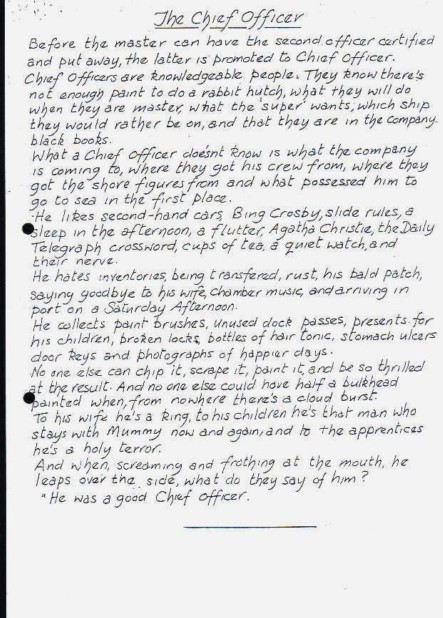 The Chief Officer
Before the master can have the second officer certified
and put away, the latter is promoted to Chief Officer.
Chief Officers are knowledgeable people. They know there's
not enough paint to do a rabbit hutch, what they will do
when they are master, what the 'super' wants, which ship
they would rather be on, and that they are in the company.
black books.
What a Chief Officer doesnt know is what the company
is coming to, where they got his crew from, where they
got the shore figures from and what possessed him to
go to sea in the first place.
He likes second-hand cars, Bing Crosby, slide rules, a
sleep in the afternoon, a flutter, Agatha Christie, the Daily
Telegraph crossword, cups of tea, a quiet watch, and
their nerve.
He hates inventories, being transfered, rust, his bald patch,
saying goodbye to his wife, chamber music, and arriving in
port on a Saturday Afternoon.
He collects paint brushes, unused dock passes, presents for
his children, broken locks, bottles of hair tonic, stomach ulcers
door keys and photographs of happier days.
No one else can chip it, scrape it, paint it, and be so thrilled
at the result. And no one else could have half a bulkhead
painted when, from nowhere there's a cloud burst.
To his wife he's a king, to his children he's that man who
stays with Mummy now and again, and to the apprentices
he's a holy terror.
And when, screaming and frothing at the mouth, he
leaps over the side, what do they say of him?
"He was a good Chief Officer.